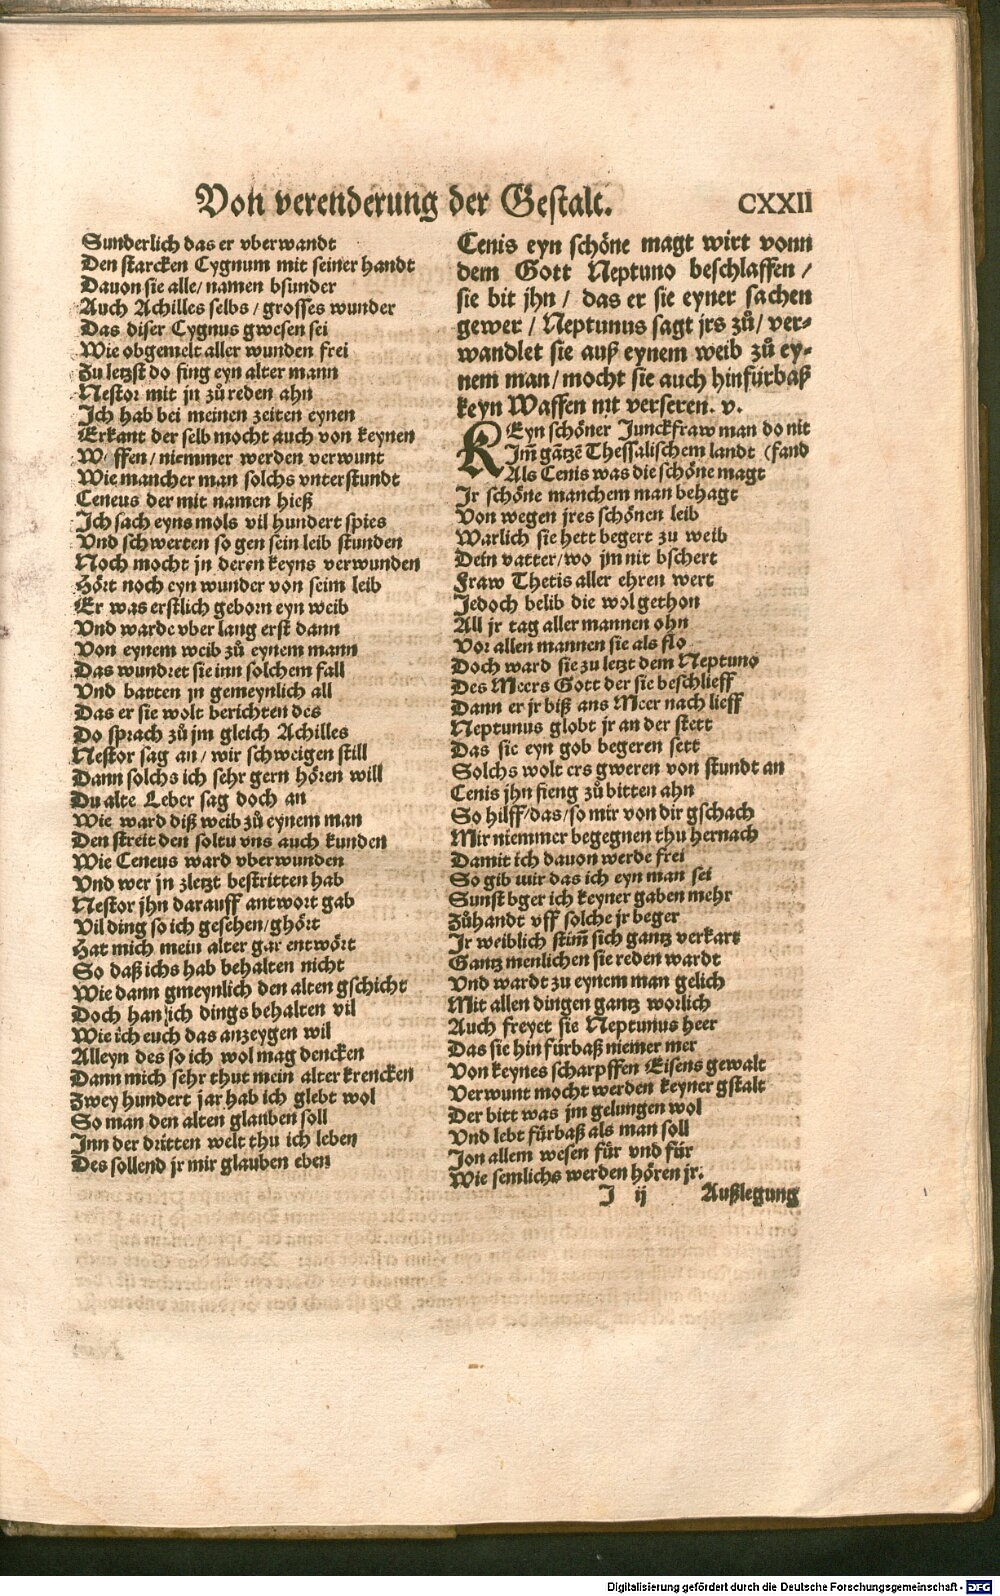 Von verenderung der Gestalt. CXXII
Sunderlich das er vberwandt
Den starcken Cygnum mit seiner handt
Dauon sie alle / namen bsunder
Auch Achilles selbs / grosses wunder
Das diser Cygnus gwesen sei
Wie obgemelt aller wunden frei
Zu letzst do fing eyn alter mann
Nestor mit jn zů reden ahn
Ich hab bei meinen zeiten eynen
Erkant der selb mocht auch von keynen
W ffen / niemmer werden verwunt
Wie mancher man solchs vnterstundt
Ceneus der mit namen hieß
Ich sach eyns mols vil hundert spies
Vnd schwerten so gen sein leib stunden
Noch mocht jn deren keyns verwunden
Hört noch eyn wunder von seim leib
Er was erstlich geborn eyn weib
Vnd warde vber lang erst dann
Von eynem weib zů eynem mann
Das wundret sie inn solchem fall
Vnd batten jn gemeynlich all
Das er sie wolt berichten des
Do sprach zů jm gleich Achilles
Nestor sag an / wir schweigen still
Dann solchs ich sehr gern hören will
Du alte Leber sag doch an
Wie ward diß weib zů eynem man
Den streit den soltu vns auch kunden
Wie Ceneus ward vberwunden
Vnd wer jn zletzt bestritten hab
Nestor jhn darauff antwort gab
Vil ding so ich gesehen / ghört
Hat mich mein alter gar entwört
So daß ichs hab behalten nicht
Wie dann gmeynlich den alten gschicht
Doch han ich dings behalten vil
Wie ich euch das anzeygen wil
Alleyn des so ich wol mag dencken
Dann mich sehr thut mein alter krencken
Zwey hundert jar hab ich glebt wol
So man den alten glauben soll
Inn der dritten welt thu ich leben
Des sollend jr mir glauben eben
Cenis eyn schöne magt wirt vonn
dem Gott Neptuno beschlaffen /
sie bit jhn / das er sie eyner sachen
gewer / Neptunus sagt jrs zů / ver-
wandlet sie auß eynem weib zů ey-
nem man / mocht sie auch hinfürbaß
keyn Waffen nit verseren. v.
KEyn schöner Junckfraw man do nit
Im̃ gãtzẽ Thessalischem landt (fand
Als Cenis was die schöne magt
Jr schöne manchem man behagt
Von wegen jres schönen leib
Warlich sie hett begert zu weib
Dein vatter / wo jm nit bschert
Fraw Thetis aller ehren wert
Jedoch belib die wol gethon
All jr tag aller mannen ohn
Vor allen mannen sie als flo
Doch ward sie zu letzt dem Neptuno
Des Meers Gott der sie beschlieff
Dann er jr biß ans Meer nach lieff
Neptunus globt jr an der stett
Das sie eyn gob begeren sett
Solchs wolt ers gweren von stundt an
Cenis jhn fieng zů bitten ahn
So hilff / das / so mir von dir gschach
Mir niemmer begegnen thu hernach
Damit ich dauon werde frei
So gib mir das ich eyn man sei
Sunst bger ich keyner gaben mehr
Zůhandt vff solche jr beger
Jr weiblich stim̃ sich gantz verkart
Gantz menlichen sie reden wardt
Vnd wardt zu eynem man gelich
Mit allen dingen gantz worlich
Auch freyet sie Neptunus heer
Das sie hin fürbaß niemer mer
Von keynes scharpffen Eisens gewalt
Verwunt mocht werden keyner gstalt
Der bitt was jm gelungen wol
Vnd lebt fürbaß als man soll
Jon allem wesen für vnd für
Wie semlichs werden hören jr.
J ij Außlegung
Digitalisierung gefördert durch die Deutsche Forschungsgemeinschaft - DFG